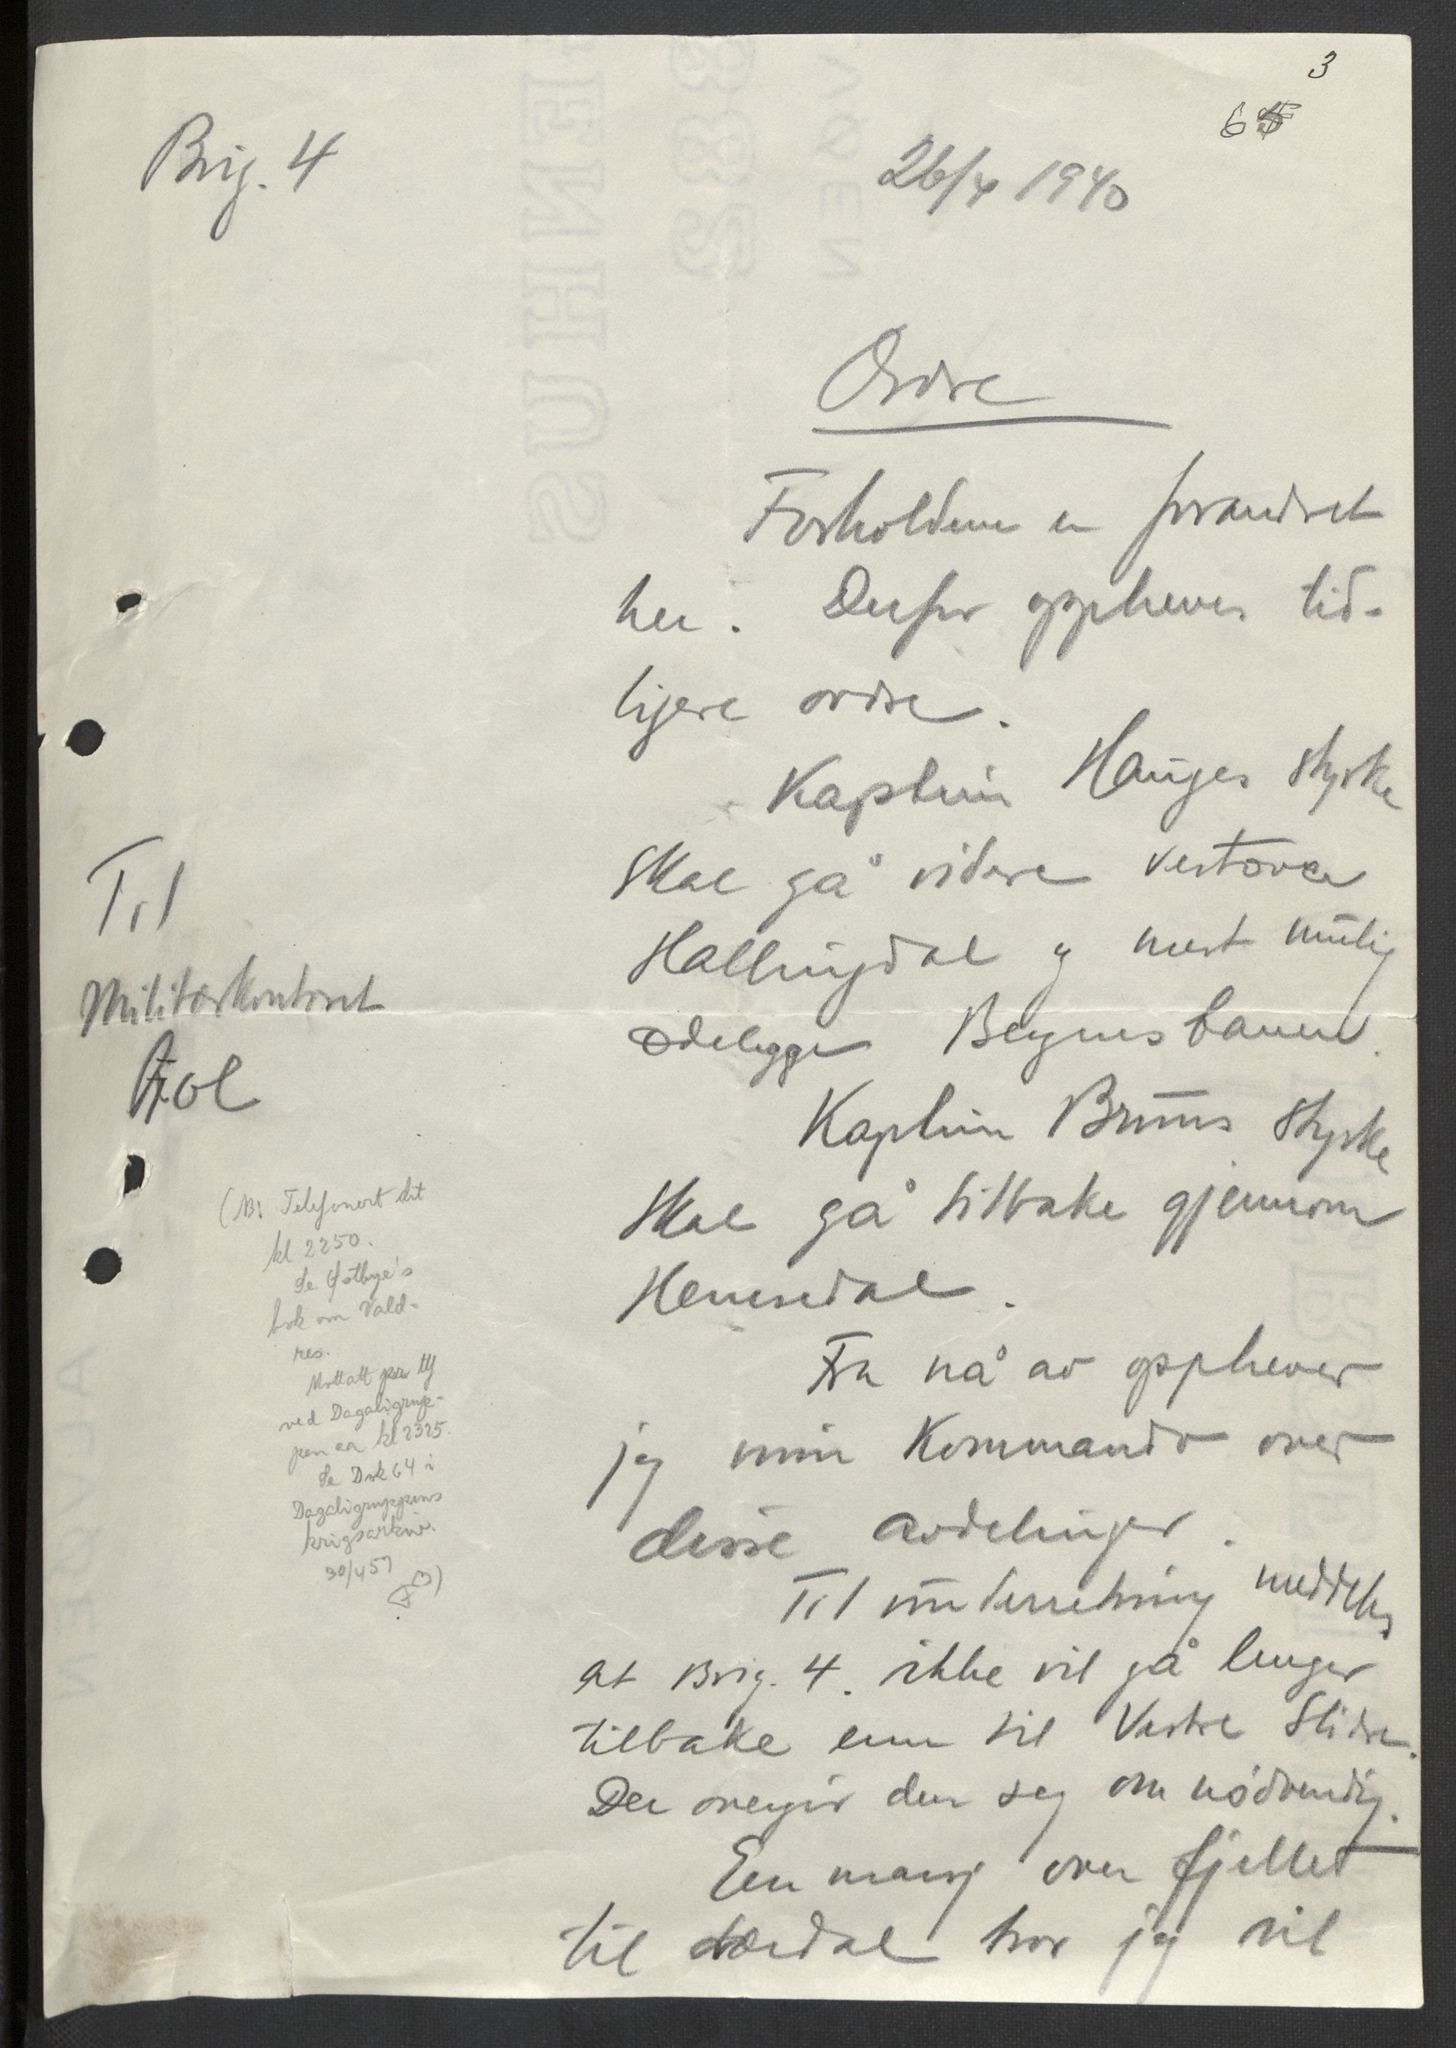 3
65
Brig. 4
26/4 1940
Ordre
Forholdene er forandret
her. Derfor oppheves tid-
ligere ordre.
Kaptein Hauges styrke
skal gå videre vestover
Hallingdal og mest mulig
ødelegge Bergensbanen.
Kaptein Bruus styrke
skal gå tilbake gjennom
Hemsedal.
Fra nå av opphever
jeg min Kommando over
disse avdelinger.
Til underretning meddeles
at Brig. 4. ikke vil gå lenger
tilbake enn til Vestre Slidre.
Der overgir den seg om nødvendig.
En marsj over fjellet
til Lærdal tror jeg vil
Til
Militærkontoret
Ål
(NB! Telefonert dit
kl 2250.
Se Østbye's
bok om Vald-
res.
Mottatt pr tlf
ved Dagaligrup-
pen ca kl 2325.
Se Dok 64 i
Dagaligruppens
krigsarkiv.
30/4 51
FENHUS
ALVSEN